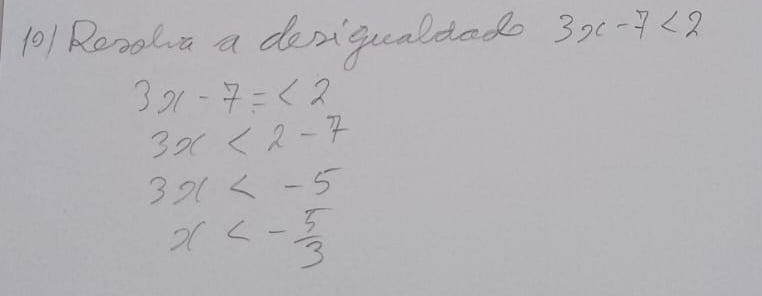 10) Resolva a desigualdade 3x - 7 < 2
3x - 7 = < 2
3x < 2 - 7
3x < - 5
x < - 5/3